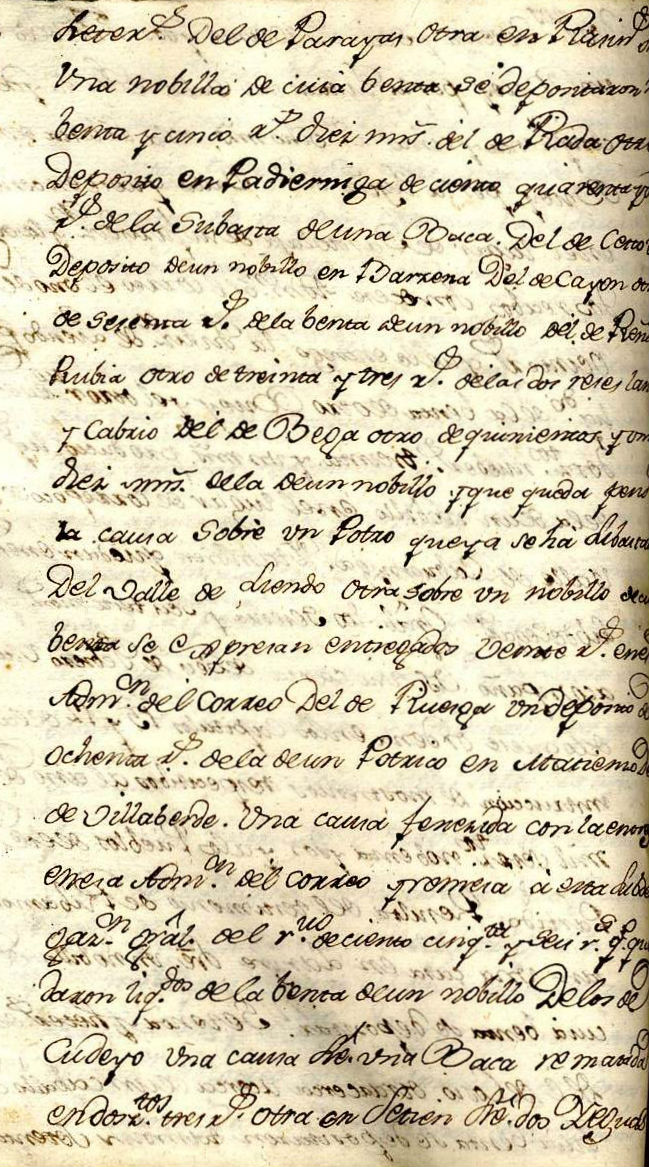 Del de Parayas otra en
Una nobilla de cuia benta se depontaron
benta y cinco r.s diez mrs. del de Rada otro
Deposito en Padierniga de ciento quarenta y
r.s de la Subasta de una Baca. Del de
Deposito de un nobillo en Barzena Del de Cayon otro
de sesenta r.s de la benta de un nobillo del de Peña
Rubia otro de treinta y tres r.s de las dos reses lan
y Cabrio del de Bega otro de quinientos y
diez mrs. de la de un nobillo y que queda pend
la causa Sobre un Potro que ya se há
Del Valle de Liendo otra sobre un nobillo de cu
benta se expresan entregados veinte r.s en el
Adm.on del Correo Del de Ruesga un deposito de
ochenta r.s de la de un Potrico en Matienzo De
de Villaberde. Una causa fenezida con la entreg
en esa Adm.on del Correo y remesa á esta Subde
gaz.n gral. del r.uo de ciento cinq.ta y seis r.s q.e que
daron liq.dos de la benta de un nobillo De los de
Cudeyo una causa sre. una Baca rematada
en dosz.tos tres r.s otra en Setien sre. dos Yeguas